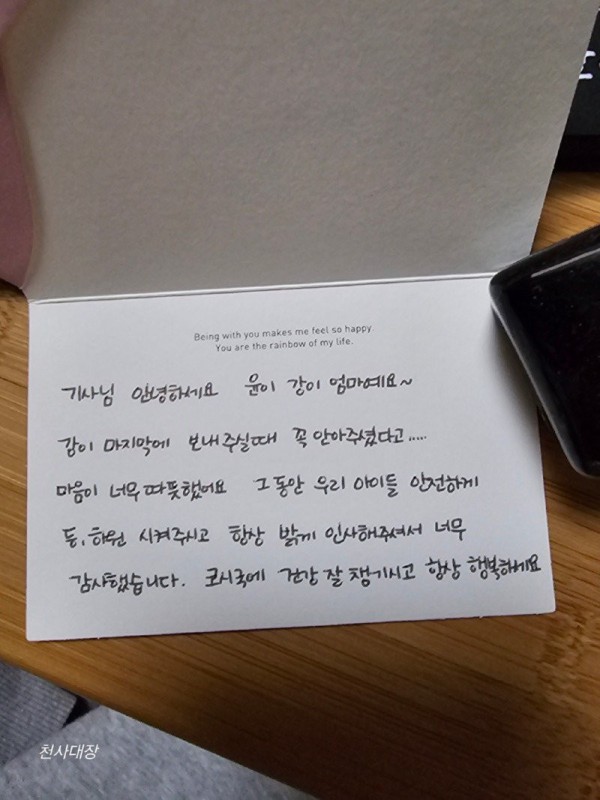 Being with you makes me feel so happy.
You are the rainbow of my life.
기사님 안녕하세요 윤이 강이 엄마예요~
강이 마지막에 보내주실때 꼭 안아주셨다고.....
마음이 너무 따뜻했어요 그동안 우리 아이들 안전하게
등, 하원 시켜주시고 항상 밝게 인사해주셔서 너무
감사했습니다. 코시국에 건강 잘 챙기시고 항상 행복하세요
천사대장